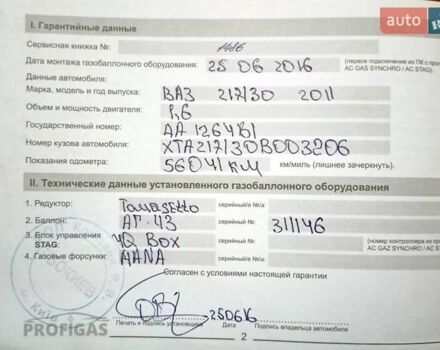 auto
I. Гарантийные данные
Сервисная книжка №: 1486
Дата монтажа газобаллонного оборудования: 25 06 2016 (первое подключение из ПК с про
AC GAS SYNCHRO / AC STAG).
Данные автомобиля:
Марка, модель и год выпуска: ВАЗ 217130 2011
Объем и мощность двигателя: 1,6
Государственный номер: АА 1264ВI
Номер кузова автомобиля: XTA217130B0033206
Показания одометра: 56041 КМ км/миль (лишнее зачеркнуть).
II. Технические данные установленного газобаллонного оборудования
1. Редуктор: Tomasetto серийный/е №/а:
2. Баллон: АГ-43 серийный №/а: 311146
3. Блок управления STAG: 4Q BOX серийный №: (номер контроллера из пр
AC GAZ SYNCHRO / AC STAG).
4. Газовые форсунки: HANA серийный/е №/а:
Согласен с условиями настоящей гарантии
250616
Печать и подпись установщика Дата Подпись владельца автомобиля
PROFIGAS
2